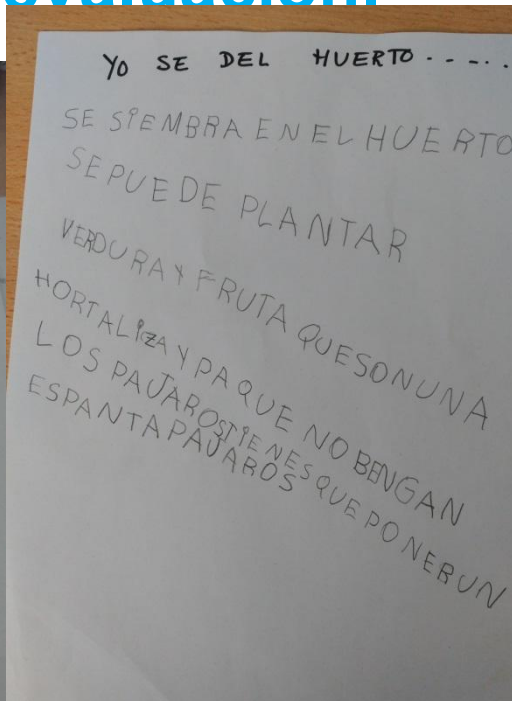 YO SE DEL HUERTO . - - . . .
SE SIEMBRA EN EL HUERTO
SE PUEDE PLANTAR
VERDURA Y FRUTA QUE SON UNA
HORTALIZA Y PA QUE NO BENGAN
LOS PAJAROS TIENES QUE PONER UN
ESPANTAPAJAROS